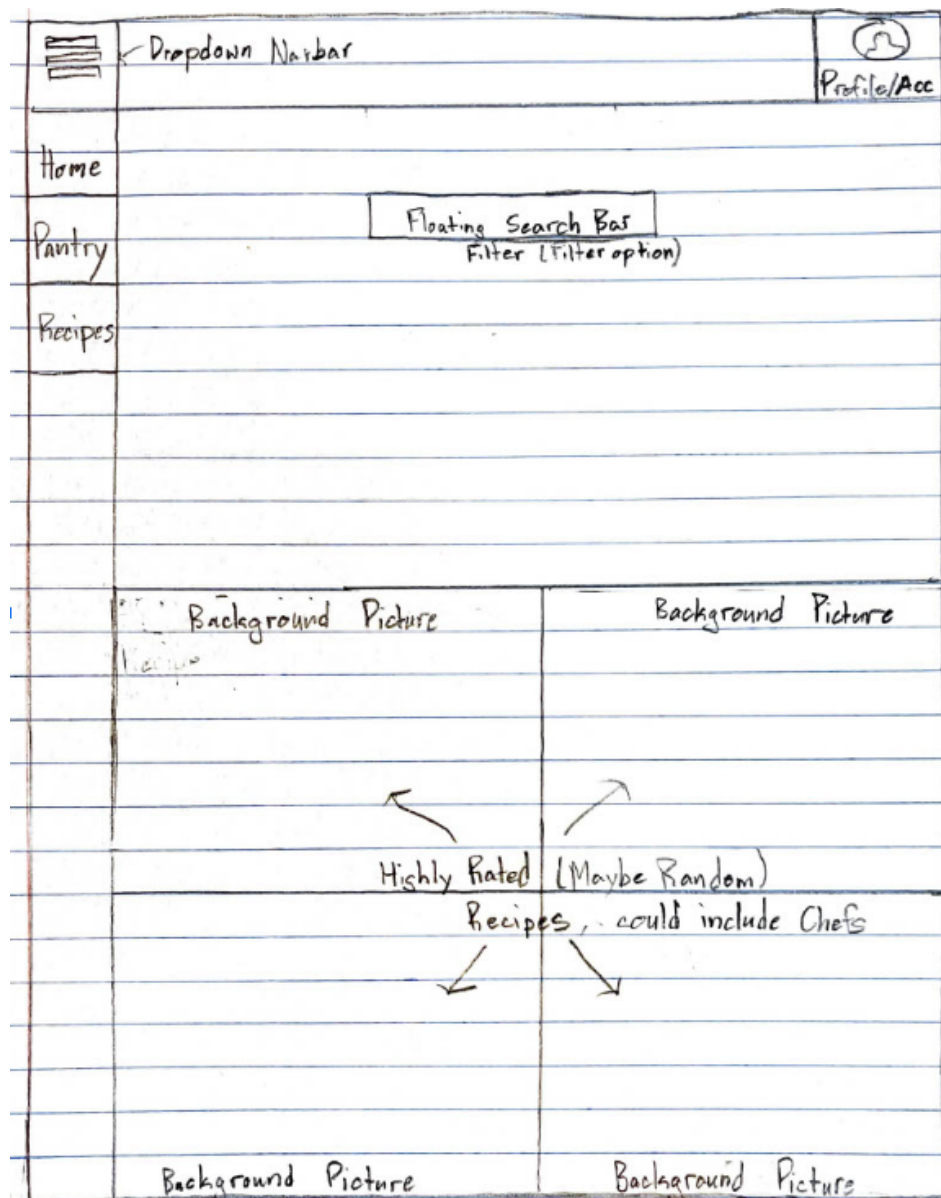 Dropdown Navbar
Profile/Acc
Home
Pantry
Recipes
Floating Search Bar
Filter (Filter option)
Background Picture
Background Picture
Highly Rated (Maybe Random)
Recipes, could include Chefs
Background Picture
Background Picture